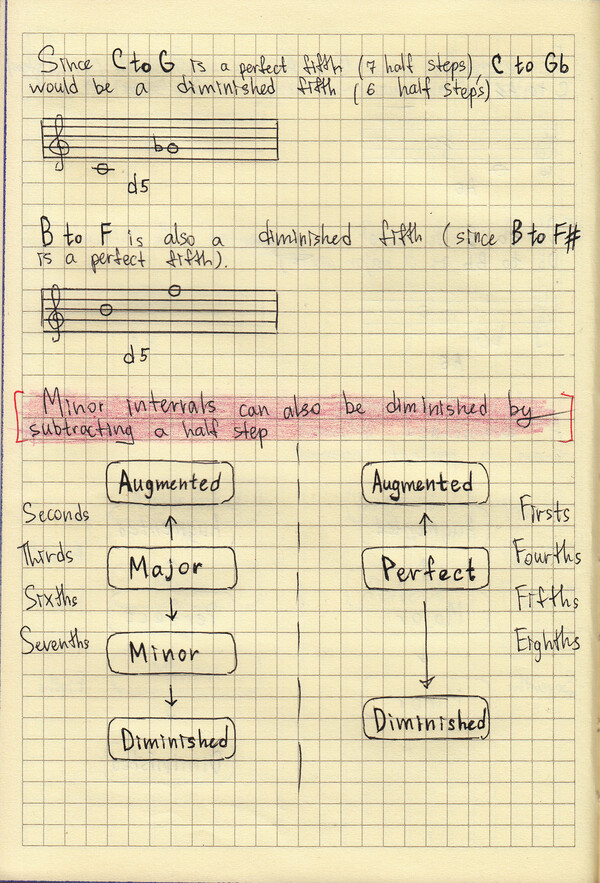 Since C to G is a perfect fifth (7 half steps), C to Gb
would be a diminished fifth (6 half steps)
d5
B to F is also a diminished fifth (since B to F#
is a perfect fifth).
d5
Minor intervals can also be diminished by
subtracting a half step
Augmented
Augmented
Seconds
Firsts
Thirds
Major
Perfect
Fourths
Sixths
Fifths
Sevenths
Minor
Eighths
Diminished
Diminished